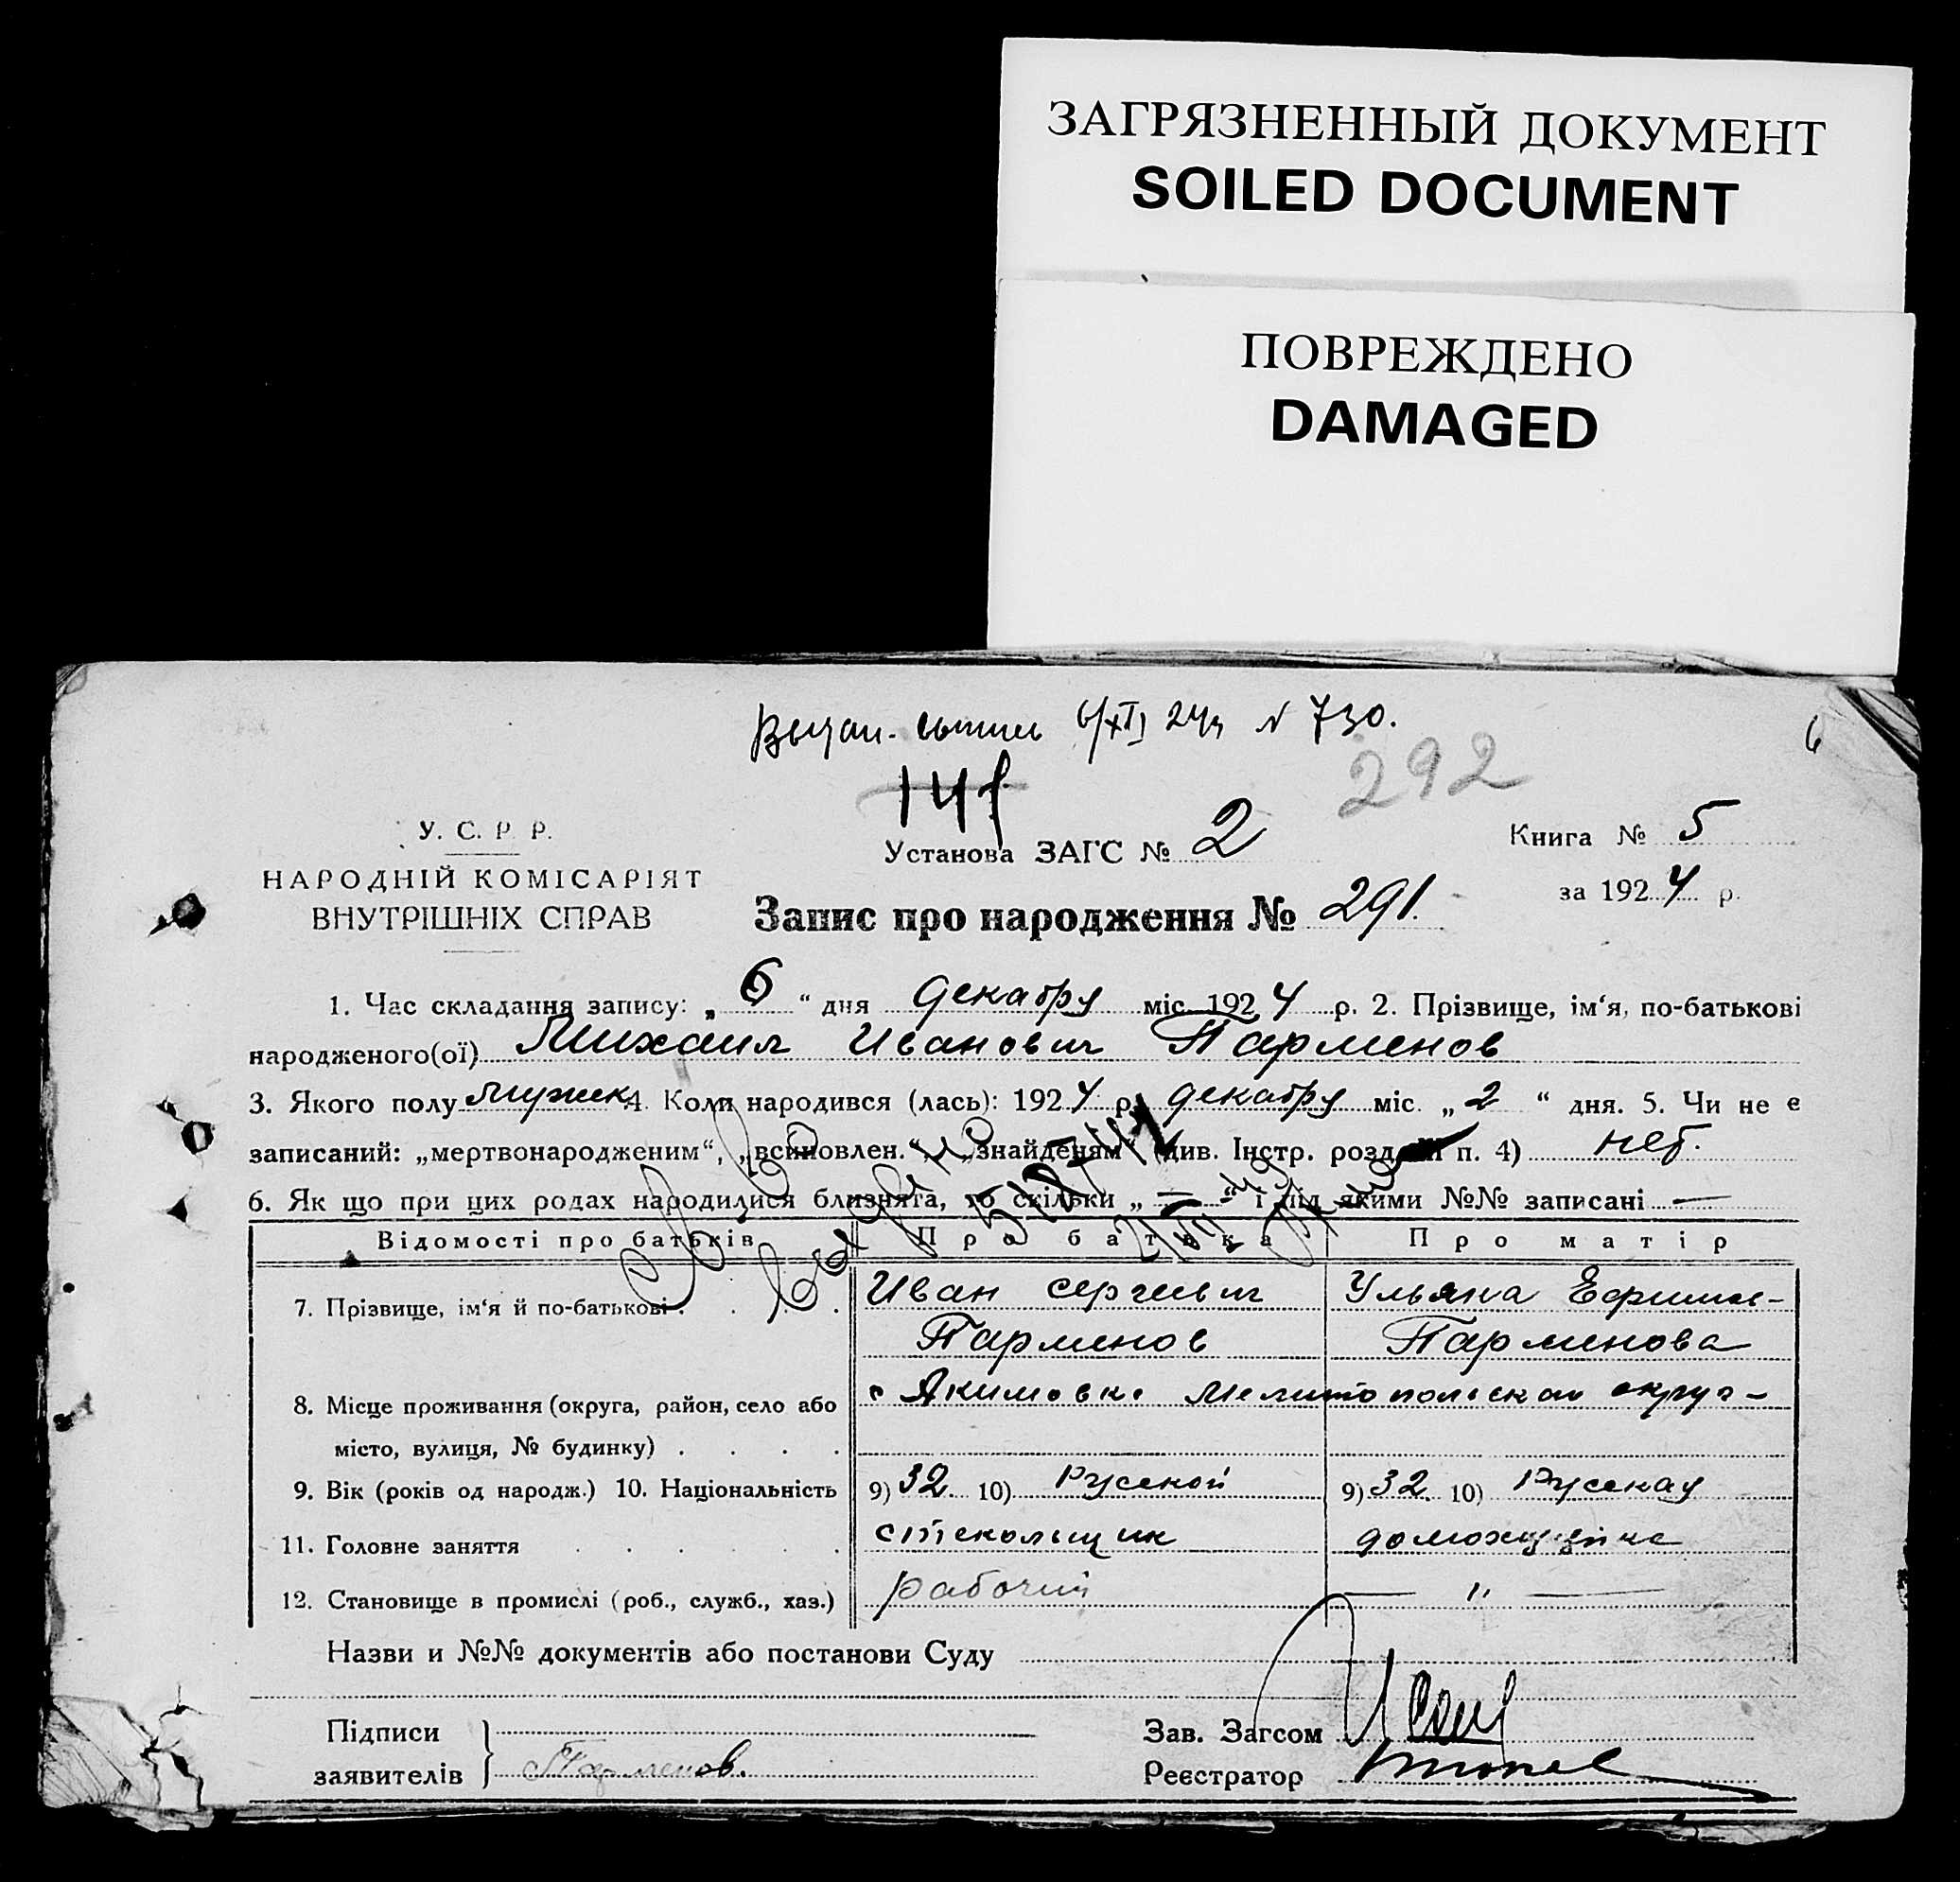 ЗАГРЯЗНЕННЫЙ ДОКУМЕНТ
SOILED DOCUMENT
ПОВРЕЖДЕНО
DAMAGED
6/XII 24 г N 730.
6
292
У. С. Р. Р.
Установа ЗАГС № 2
Книга № 5
НАРОДНІЙ КОМІСАРІЯТ
за 1924 р.
ВНУТРІШНІХ СПРАВ
Запис про народження № 291.
1. Час складання запису: „ 6 “ дня декабря міс. 1924 р. 2. Прізвище, ім‘я, по-батькові
народженого(ої) Михаил Иванович Парменов
3. Якого полу мужск 4. Коли народився (лась): 1924 р. декабря міс. „ 2 “ дня. 5. Чи не є
записаний: „мертвонародженим“, „всиновлен.“, „знайденям“ (див. Інстр. розд. III п. 4) нет.
6. Як що при цих родах народилися близнята, то скільки „ — “ і під якими №№ записані —
Відомості про батьків Про батька Про матір
7. Прізвище, ім‘я й по-батькові . . . . Иван Сергеевич Ульяна Ефимов-
Парменов Парменова
8. Місце проживання (округа, район, село або с Якимовка Мелитопольской округ-
місто, вулиця, № будинку) . . . .
9. Вік (років од народж.) 10. Національність 9) 32 10) Русской 9) 32 10) Русская
11. Головне заняття . . . . . . стекольщик домохозяйка
12. Становище в промислі (роб., служб., хаз.) рабочий — " —
Назви и №№ документів або постанови Суду
Підписи
Зав. Загсом
заявителів Парменов.
Реєстратор